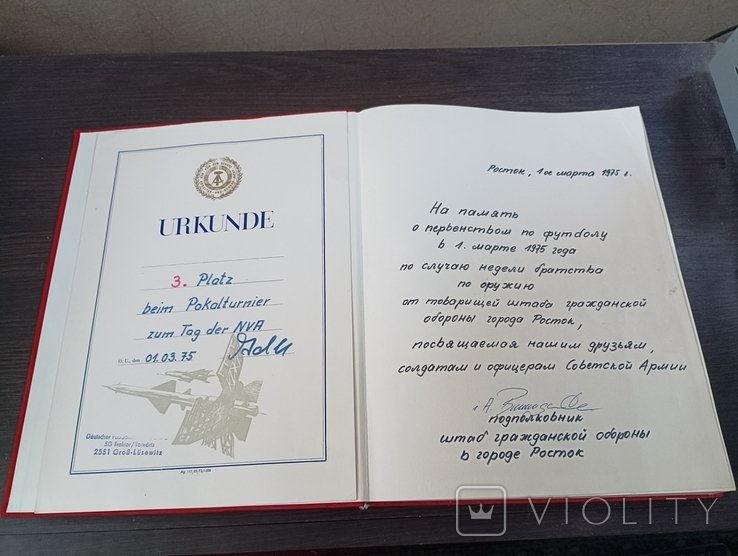 URKUNDE
3. Platz
beim Pokalturnier
zum Tag der NVA
O. U., den 01.03.75
Deutscher
SG Traktor
2551 Groß-Lüsewitz
Росток, 1 ое марта 1975 г.
На память
о первенством по футболу
в 1. марте 1975 года
по случаю недели братства
по оружию
от товарищей штаба гражданской
обороны города Росток,
посвящаемая нашим друзьям,
солдатам и офицерам Советской Армии
подполковник
штаб гражданской обороны
в городе Росток
VIOLITY